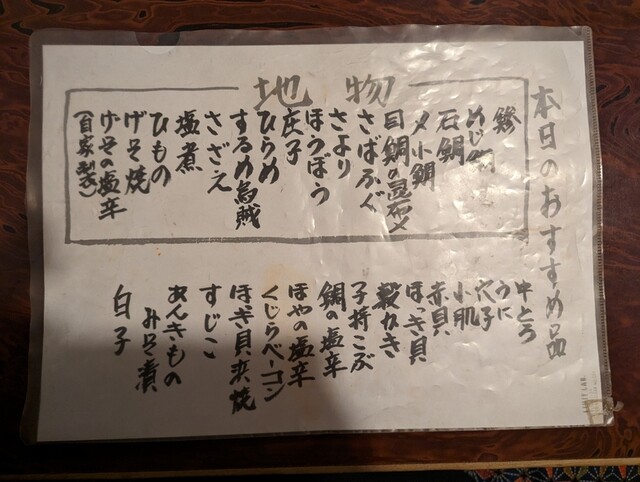 本日のおすすめ品
地物
鯵
めじ鮪
石鯛
〆小鯛
目鯛の昆布〆
さばふぐ
さより
ほうぼう
庄子
ひらめ
するめ烏賊
さざえ
塩煮
ひもの
げそ焼
げその塩辛
(自家製)
中とろ
うに
穴子
小肌
赤貝
ほっき貝
殻かき
子持こぶ
鯛の塩辛
ほやの塩辛
くじらベーコン
ほっき貝浜焼
すじこ
あんきもの
みそ漬
白子